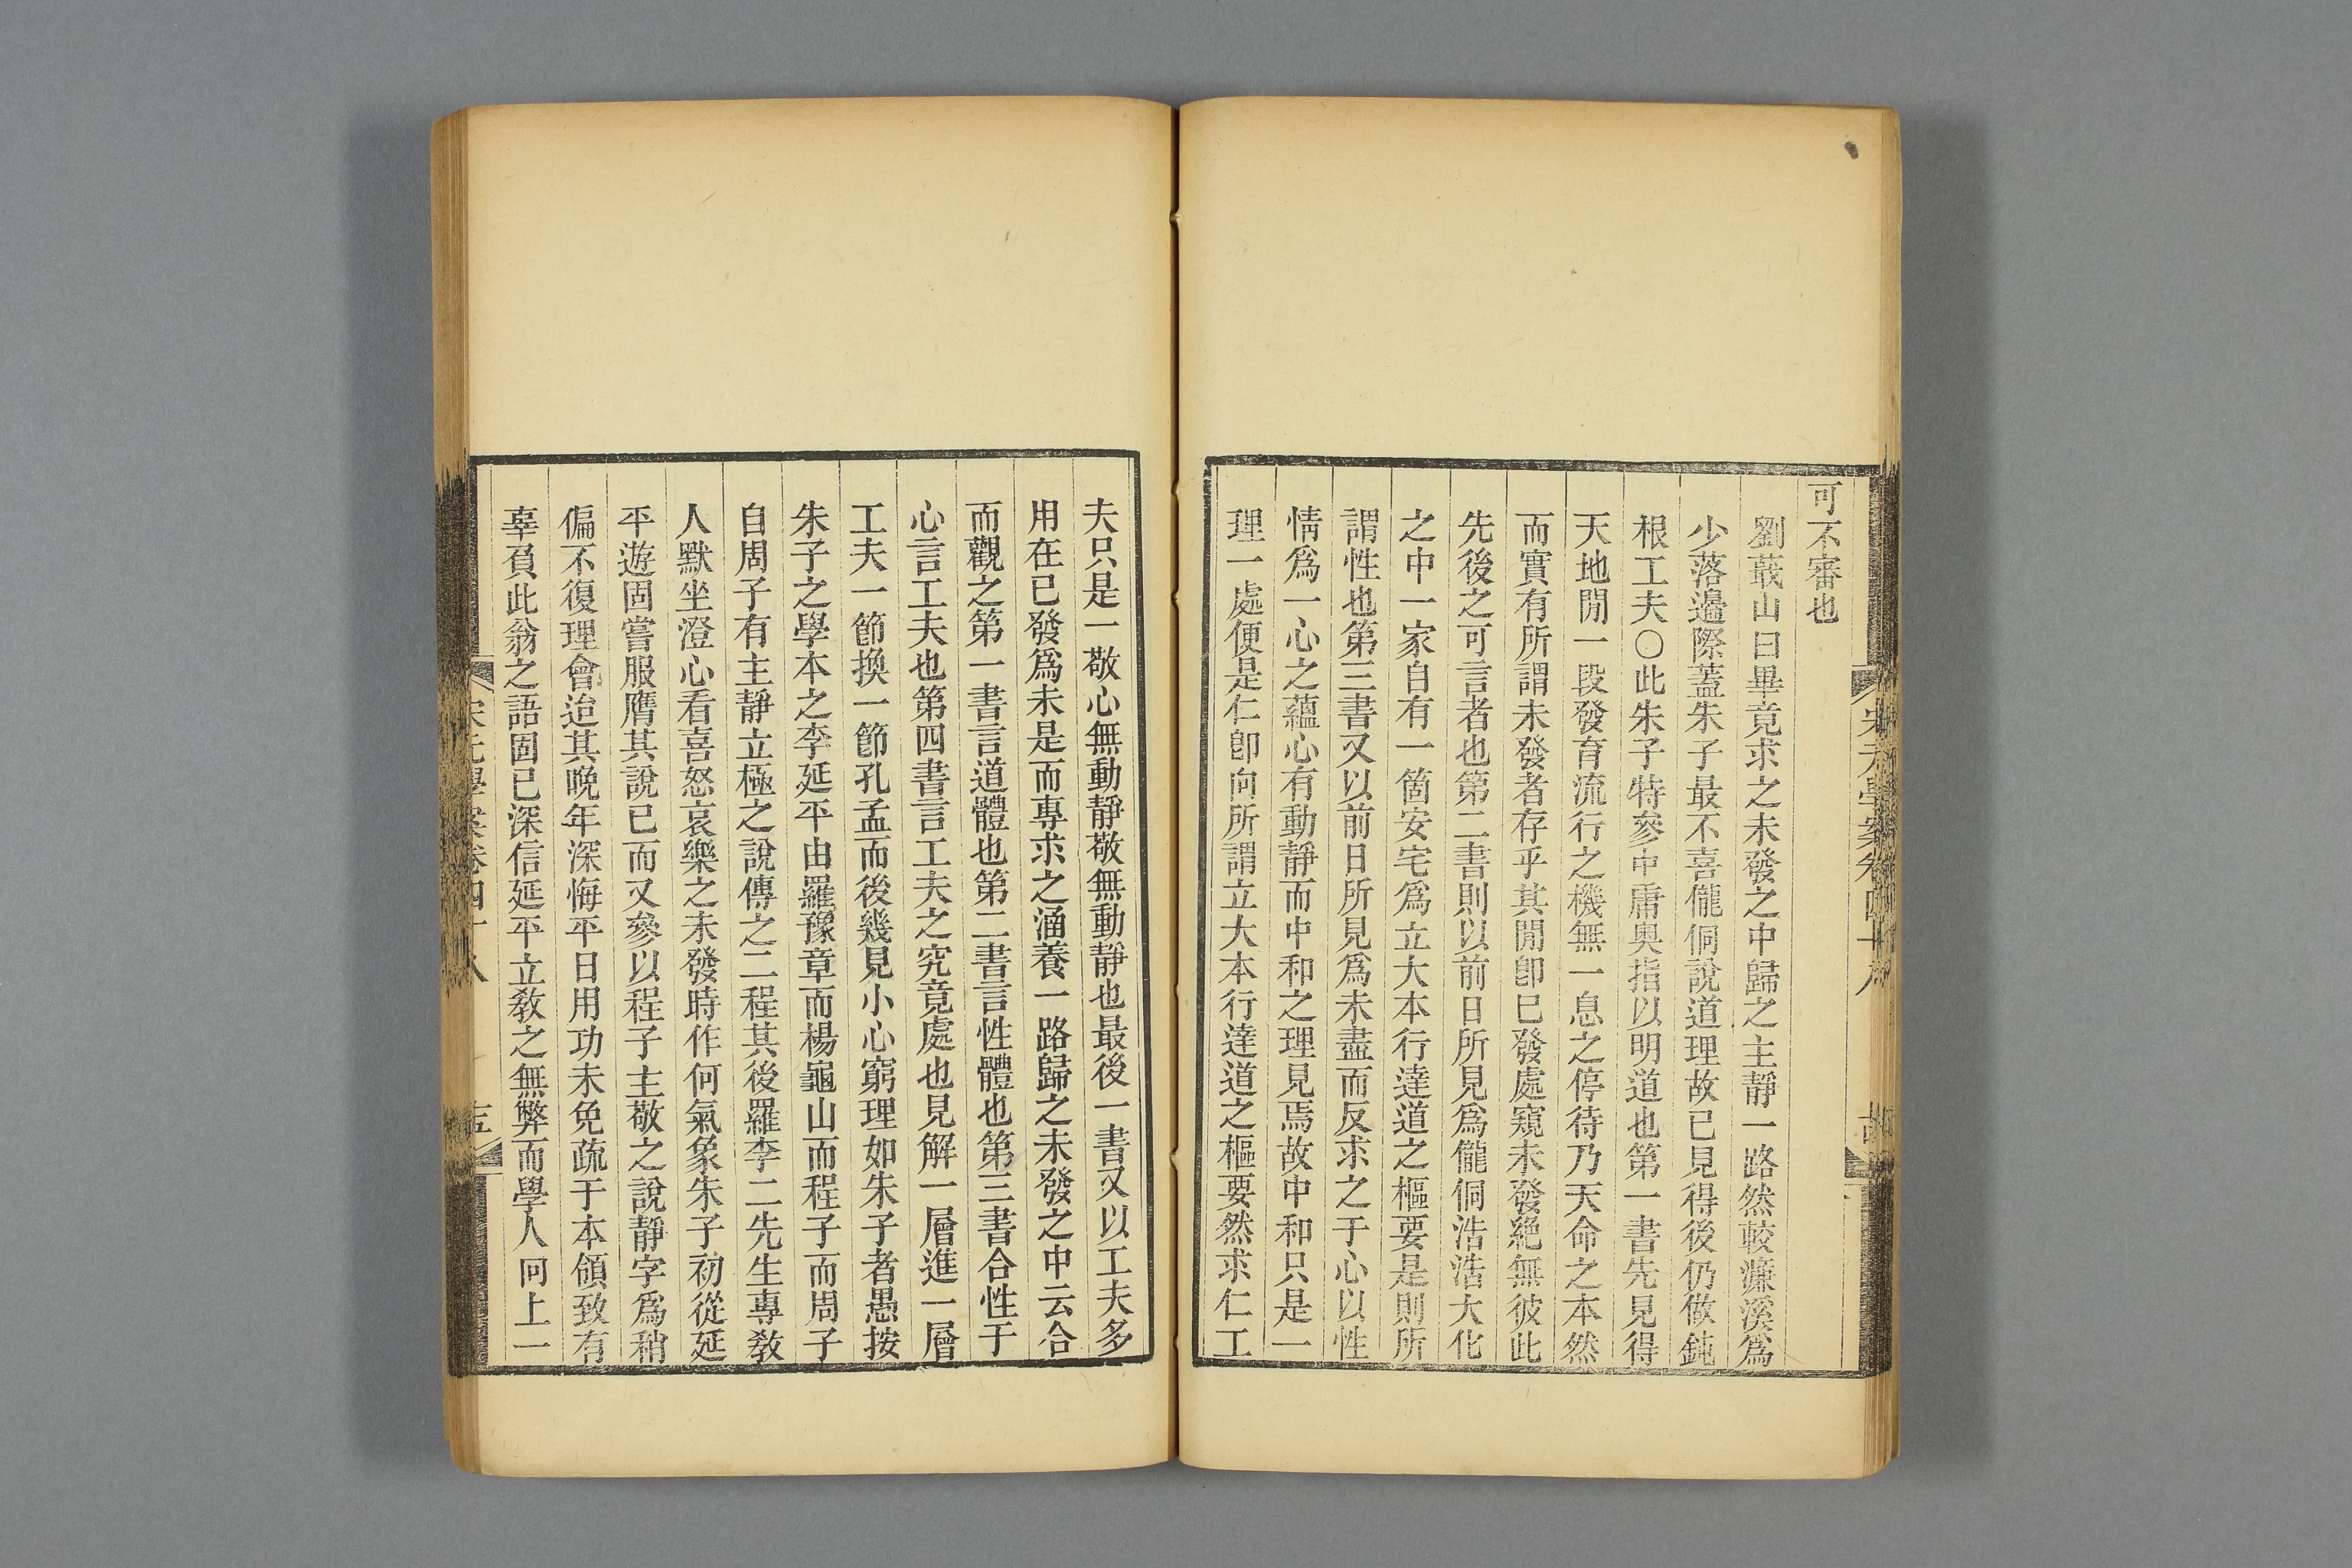 可不審也
劉蕺山曰畢竟求之未發之中歸之主靜一路然較濂溪爲
少落邊際蓋朱子最不喜儱侗說道理故已見得後仍做鈍
根工夫○此朱子特參中庸奧指以明道也第一書先見得
天地閒一段發育流行之機無一息之停待乃天命之本然
而實有所謂未發者存乎其閒卽已發處窺未發絶無彼此
先後之可言者也第二書則以前日所見爲儱侗浩浩大化
之中一家自有一箇安宅爲立大本行達道之樞要是則所
謂性也第三書又以前日所見爲未盡而反求之于心以性
情爲一心之蘊心有動靜而中和之理見焉故中和只是一
理一處便是仁卽向所謂立大本行達道之樞要然求仁工
夫只是一敬心無動靜敬無動靜也最後一書又以工夫多
用在已發爲未是而專求之涵養一路歸之未發之中云合
而觀之第一書言道體也第二書言性體也第三書合性于
心言工夫也第四書言工夫之究竟處也見解一層進一層
工夫一節換一節孔孟而後幾見小心窮理如朱子者愚按
朱子之學本之李延平由羅豫章而楊龜山而程子而周子
自周子有主靜立極之說傳之二程其後羅李二先生專敎
人默坐澄心看喜怒哀樂之未發時作何氣象朱子初從延
平遊固嘗服膺其說已而又參以程子主敬之說靜字爲稍
偏不復理會迨其晚年深悔平日用功未免疏于本領致有
辜負此翁之語固已深信延平立敎之無弊而學人向上一
宋元學案卷四十八